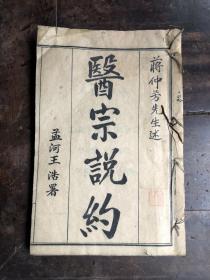 蔣仲芳先生述
醫宗說約
孟河王浩署